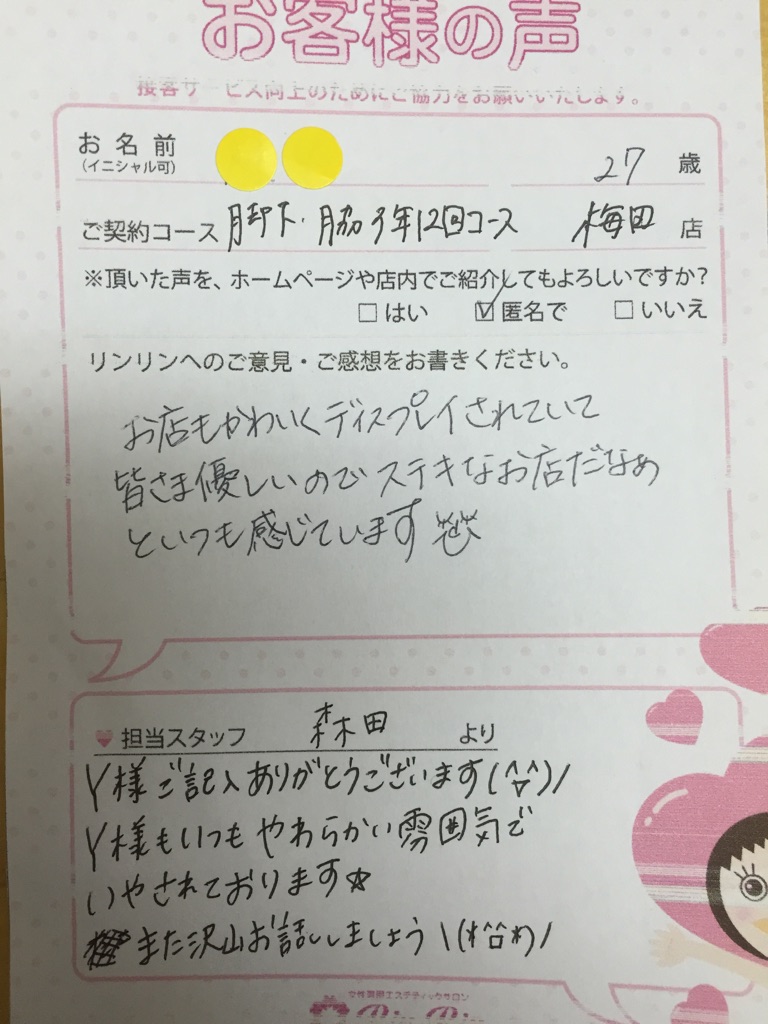 お客様の声
接客サービス向上のためにご協力をお願いいたします。
お名前
(イニシャル可)
27 歳
ご契約コース 脚下・脇3年12回コース 梅田 店
※頂いた声を、ホームページや店内でご紹介してもよろしいですか?
□はい ☑匿名で □いいえ
リンリンへのご意見・ご感想をお書きください。
お店もかわいくディスプレイされていて
皆さま優しいのでステキなお店だなぁ
といつも感じています
♥担当スタッフ 森田 より
Y様ご記入ありがとうございます(^▽^)/
Y様もいつもやわらかい雰囲気で
いやされております☆
また沢山お話ししましょう\(*^□^*)/
女性専用エステティックサロン
RinRin